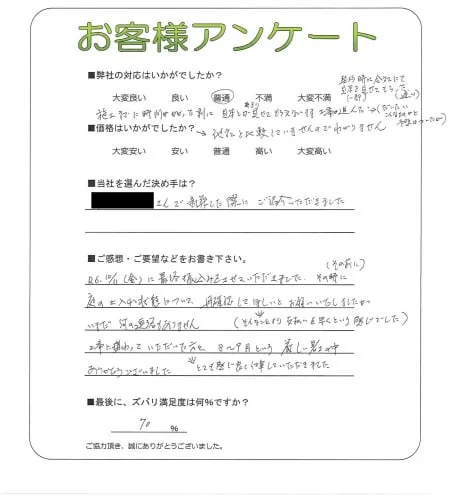 お客様アンケート
■弊社の対応はいかがでしたか?
大変良い 良い 普通 不満 大変不満
施工までに時間がかかった割に
■価格はいかがでしたか? → 他社と比較していませんのでわかりません
大変安い 安い 普通 高い 大変高い
■当社を選んだ決め手は?
さんで新築した際に ご紹介いただきました
■ご感想・ご要望などをお書き下さい。
(その前に)
R6.10/11(金)に最終振込みをさせていただきました。その時に
庭の土の状態について、再確認してほしいとお願いいたしましたが
いまだ何の連絡もありません (そんなことより支払いを早くという感じでした)
工事に携わっていただいた方々 8〜9月という厳しい暑さの中
ありがとうございました とても感じ良く仕事していただきました
■最後に、ズバリ満足度は何%ですか?
70 %
ご協力頂き、誠にありがとうございました。